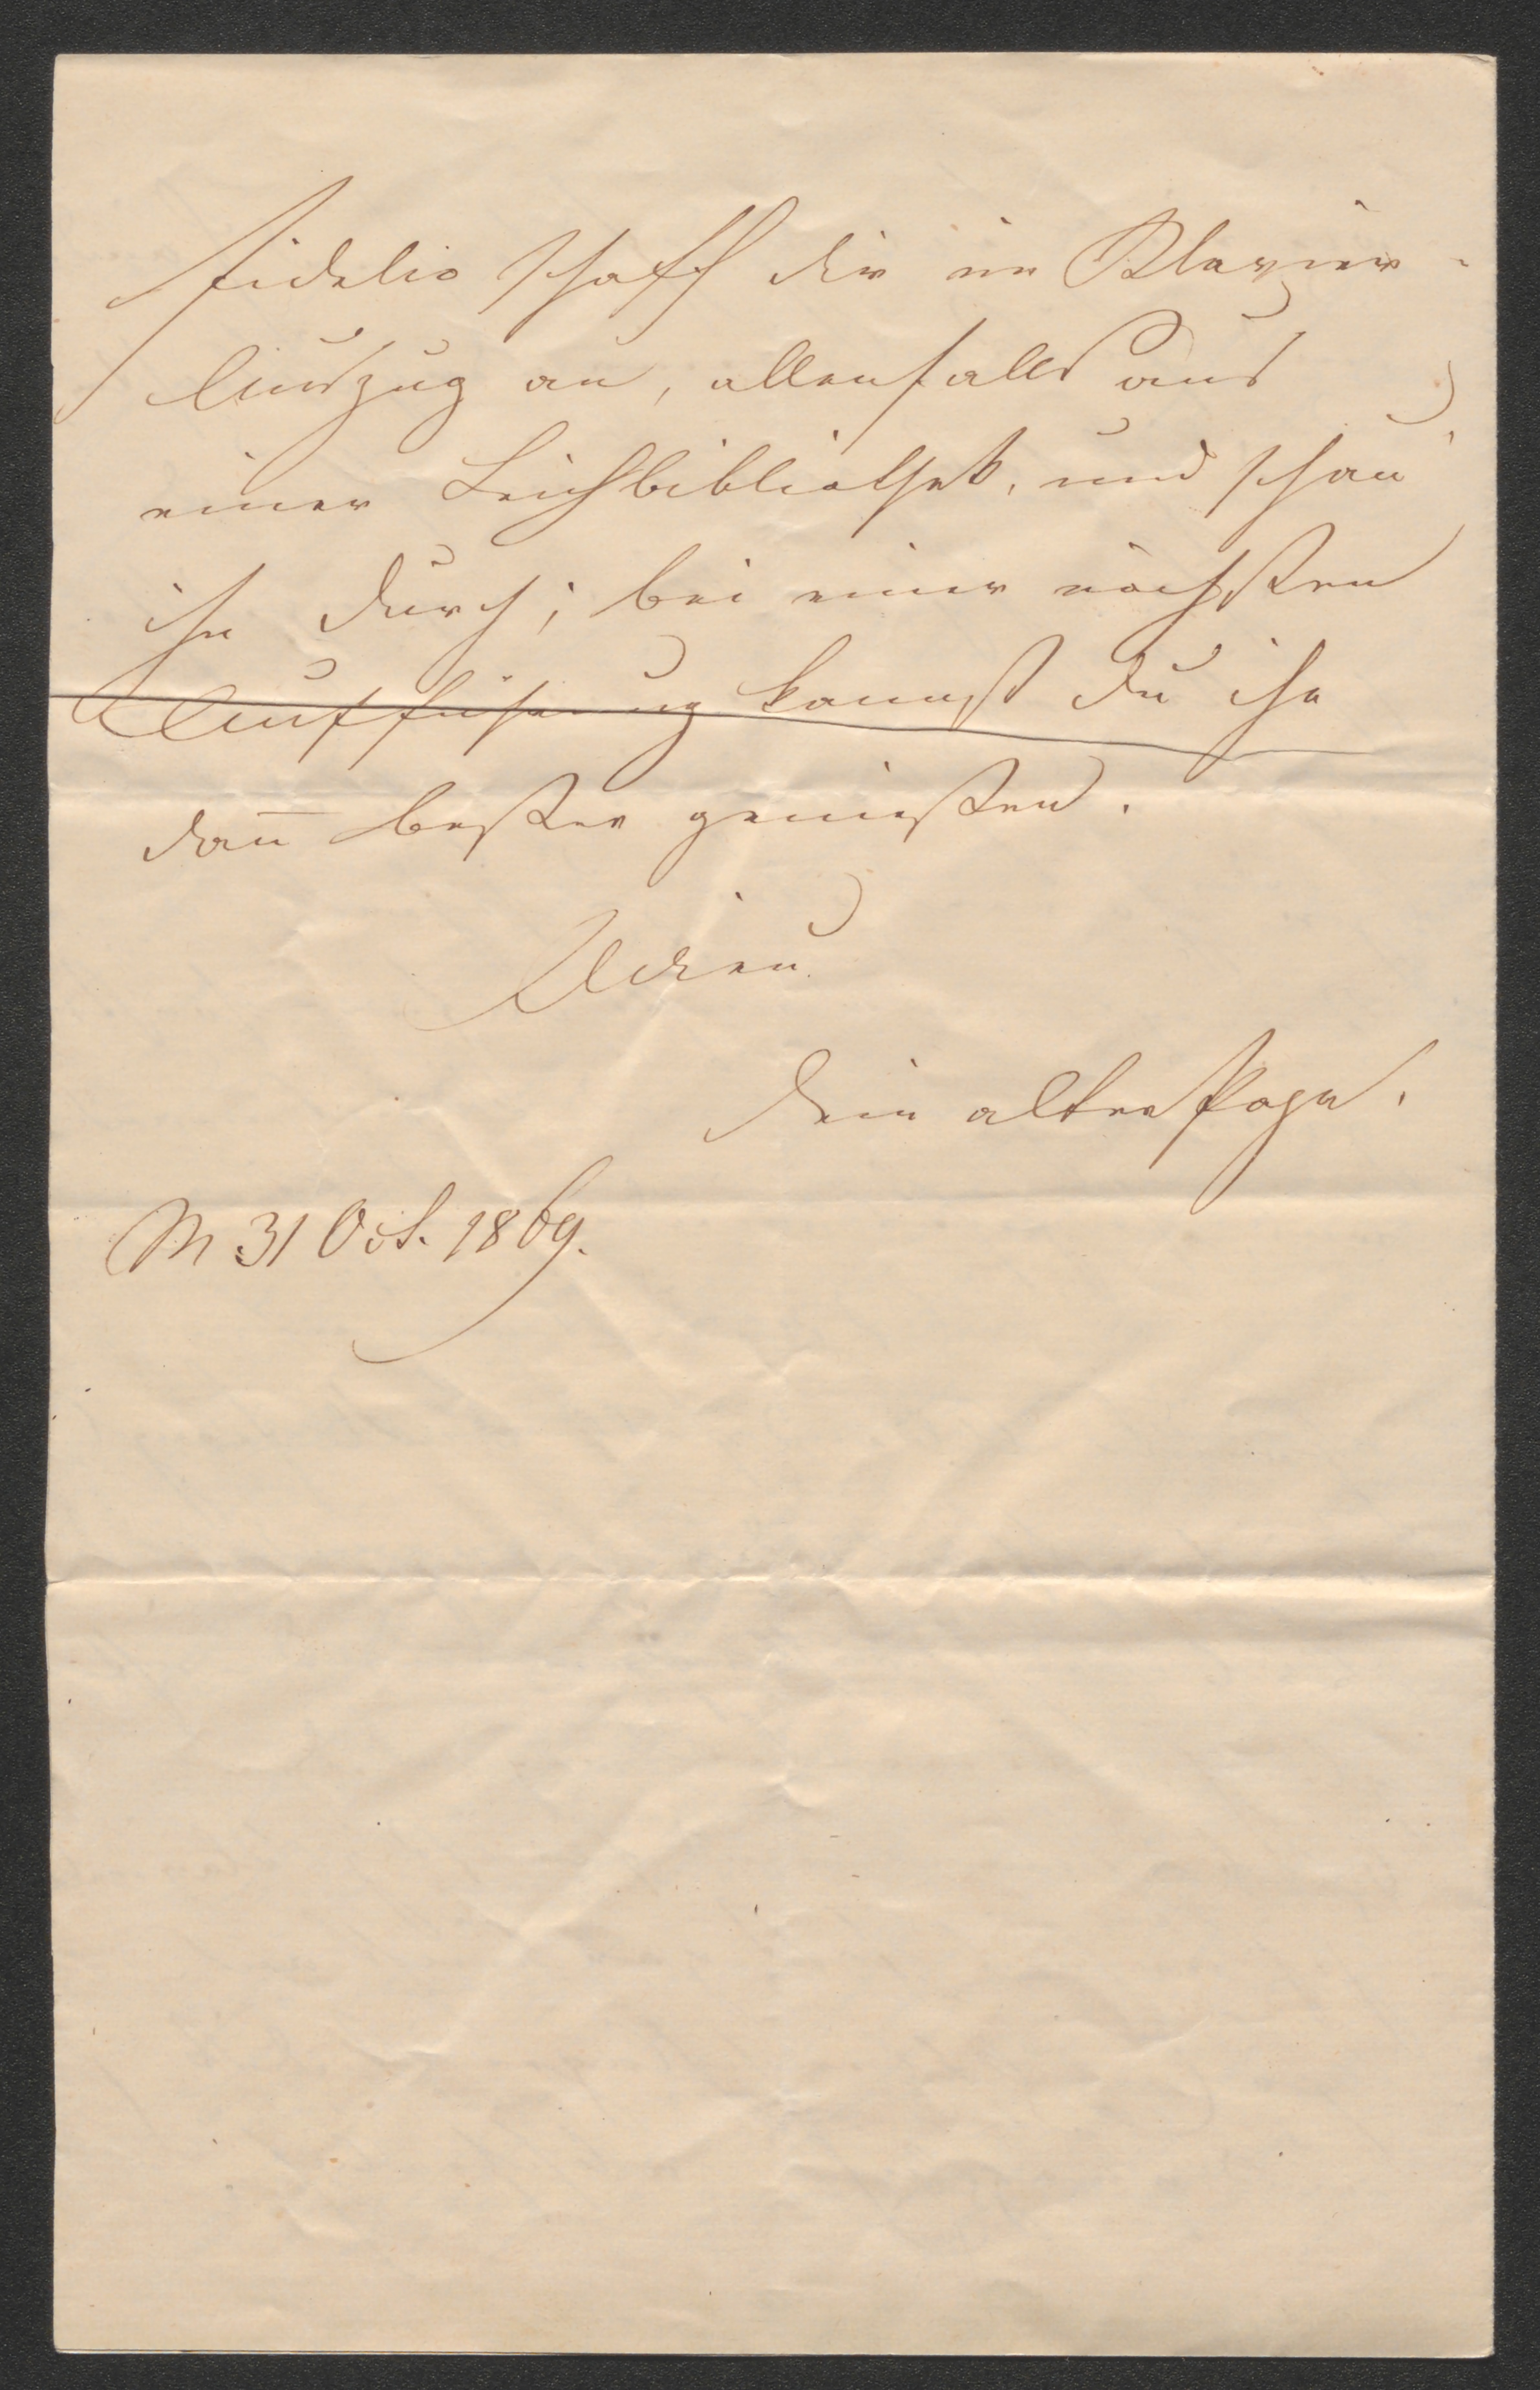 Fidelio schaff dir im Klavier-
Auszug an, allenfalls aus
einer Leihbibliothek, und schau'
ihn durch; bei einer nächsten
Aufführung kannst du ihn
dan̄ besser genießen.
Adieu
Dein alter
M 31 Oct. 1869.